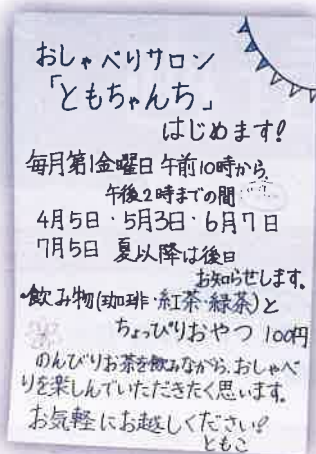 おしゃべりサロン
「ともちゃんち」
はじめます!
毎月第1金曜日 午前10時から
午後2時までの間
4月5日・5月3日・6月7日
7月5日 夏以降は後日
お知らせします。
・飲み物(珈琲・紅茶・緑茶)と
ちょっぴりおやつ 100円
のんびりお茶を飲みながら、おしゃべ
りを楽しんでいただきたく思います。
お気軽にお越しください!
ともこ